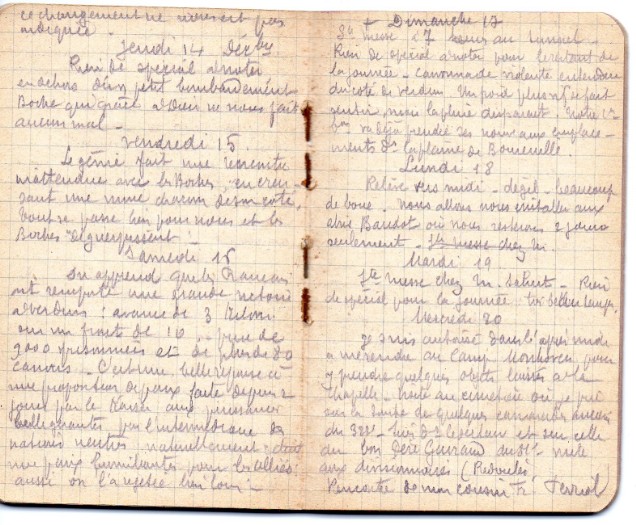 ce changement ne nous est pas
indiquée.
Jeudi 14 Déc
Rien de spécial à noter
en dehors d'un petit bombardement
Boche qui grâce à Dieu ne nous fait
aucun mal -
Vendredi 15
Le génie fait une rencontre
inattendue avec les Boches, en creu-
sant une mine chacun de son côté,
tout se passe bien pour nous et les
Boches "déguerpissent"
Samedi 16
On apprend que les Français
ont remporté une grande victoire
à Verdun : avance de 3 kilom
sur un front de 10, prise de
9000 prisonniers et de plus de 80
canons - C'est une belle réponse à
une proposition de paix faite depuis 2
jours par le Kaiser aux puissances
belligérantes par l'intermédiaire des
nations neutres, naturellement
une paix humiliante pour les alliés
aussi on l'a rejetée bien loin !
Dimanche 17
Ste messe à 7 heures au tunnel -
Rien de spécial à noter pour le restant de
la journée - canonnade violente entendue
du côté de Verdun. Un froid plus vif se fait
sentir, mais la pluie disparaît. Notre
va déjà prendre ses nouveaux emplace-
ments ds la plaine de Boureuilles.
Lundi 18
Relève vers midi - dégel - beaucoup
de boue. nous allons nous installer aux
abris Baudot où nous resterons 2 jours
seulement - Ste messe chez
Mardi 19
Ste messe chez M. - Rien
de spécial pour la journée, très beau temps.
Mercredi 20
Je suis autorisé dans l'après midi
à me rendre au Camp pour
y prendre quelques objets laissés à la
chapelle - visite au cimetière où je prie
sur la tombe de quelques camarades
du et sur celle
du bon Père Guiraud du
aux
Rencontre de mon cousin